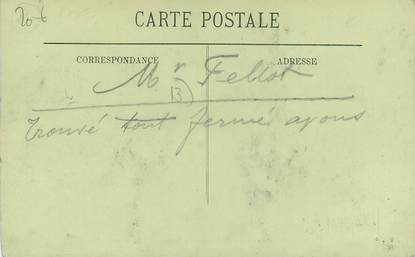 20-6
CARTE POSTALE
CORRESPONDANCE
ADRESSE
Mr Fellot
13
Trouvé tout fermé ayons